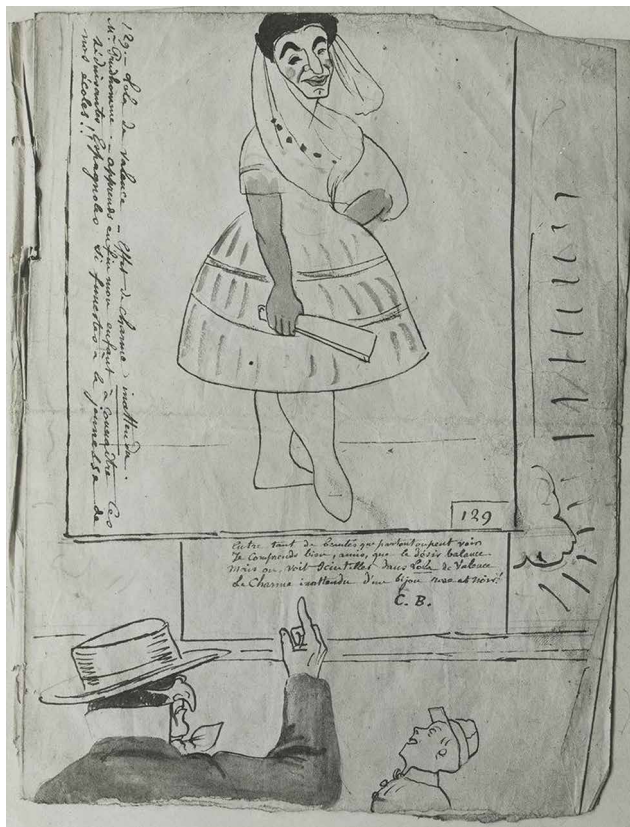 129 - Lola de Valence - Effet de charme, inattendu.
Mr Prudhomme - apprends enfin mon enfant à connaître ces
séduisantes Espagnoles si funestes à la jeunesse de
nos écoles!!
129
Entre tant de beautés que partout on peut voir
Je comprends bien, amis, que le désir balance
Mais on voit scintiller dans Lola de Valence
Le Charme inattendu d'un bijou rose et noir!
C. B.